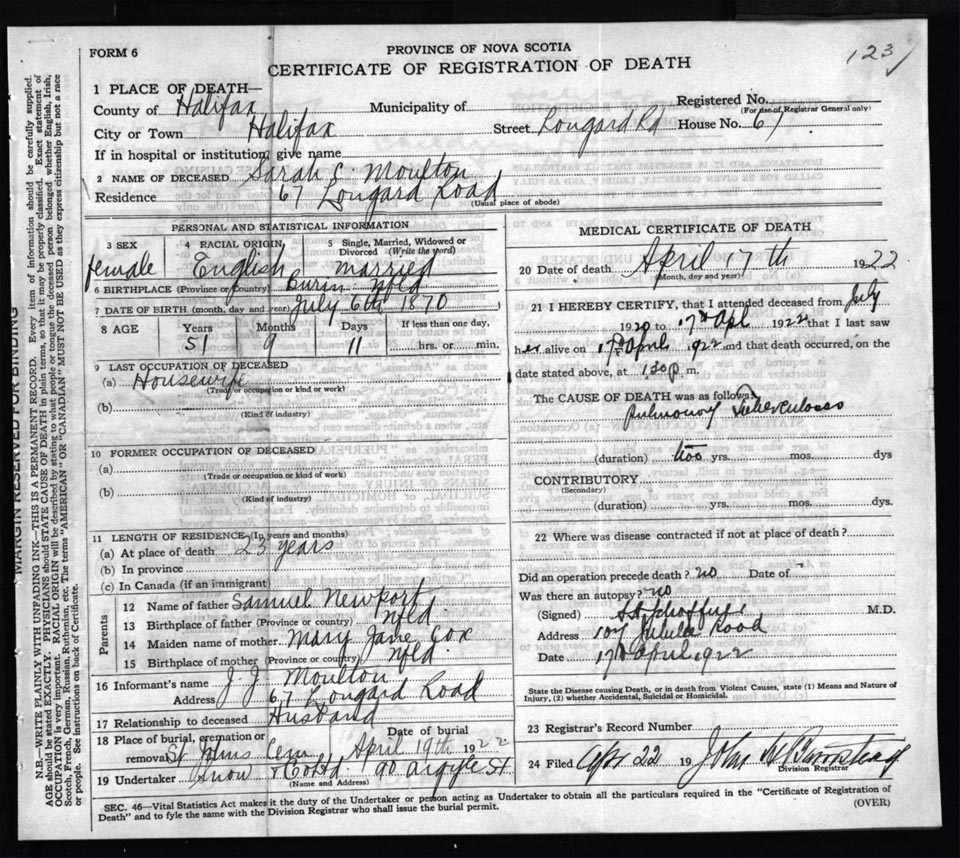 123
FORM 6
PROVINCE OF NOVA SCOTIA
CERTIFICATE OF REGISTRATION OF DEATH
1 PLACE OF DEATH—
Registered No.
(For use of Registrar General only)
County of Halifax Municipality of
City or Town Halifax Street Longard Rd House No. 67
If in hospital or institution, give name
2 NAME OF DECEASED Sarah C. Moulton
Residence 67 Longard Road
(Usual place of abode)
PERSONAL AND STATISTICAL INFORMATION
3 SEX 4 RACIAL ORIGIN 5 Single, Married, Widowed or Divorced (Write the word)
female English married
6 BIRTHPLACE (Province or Country) Burin Nfld
7 DATE OF BIRTH (month, day and year) July 6th 1870
8 AGE Years Months Days If less than one day,
51 9 11 hrs. or min.
9 LAST OCCUPATION OF DECEASED
(a) Housewife
(Trade or occupation or kind of work)
(b)
(Kind of industry)
10 FORMER OCCUPATION OF DECEASED
(a)
(Trade or occupation or kind of work)
(b)
(Kind of industry)
11 LENGTH OF RESIDENCE (In years and months)
(a) At place of death 23 years
(b) In province
(c) In Canada (if an immigrant)
Parents
12 Name of father Samuel Newport
13 Birthplace of father (Province or country) Nfld
14 Maiden name of mother Mary Jane Cox
15 Birthplace of mother (Province or country) Nfld
16 Informant's name J. J. Moulton
Address 67 Longard Road
17 Relationship to deceased Husband
18 Place of burial, cremation or removal St Johns Cem Date of Burial April 19th 1922
19 Undertaker Snow & Co Ltd 90 Argyle St
(Name and Address)
MEDICAL CERTIFICATE OF DEATH
20 Date of death April 17th 1922
(Month, day and year)
21 I HEREBY CERTIFY, that I attended deceased from July
1920 to 17th Apl 1922 that I last saw
her alive on 17th April 1922 and that death occurred, on the
date stated above, at 1.30 p. m.
The CAUSE OF DEATH was as follows:
Pulmonary Tuberculosis
(duration) two yrs. mos. dys
CONTRIBUTORY
(Secondary)
(duration) yrs. mos. dys.
22 Where was disease contracted if not at place of death?
Did an operation precede death? no Date of
Was there an autopsy? no
(Signed) M.D.
Address 107 Road
Date 17th April 1922
State the Disease causing Death, or in death from Violent Causes, state (1) Means and Nature of
Injury, (2) whether Accidental, Suicidal or Homicidal.
23 Registrar's Record Number
24 Filed Apr 22 19 John
Division Registrar
SEC. 46—Vital Statistics Act makes it the duty of the Undertaker or person acting as Undertaker to obtain all the particulars required in the "Certificate of Registration of
Death" and to fyle the same with the Division Registrar who shall issue the burial permit.
(OVER)
MARGIN RESERVED FOR BINDING
N.B.—WRITE PLAINLY WITH UNFADING INK—THIS IS A PERMANENT RECORD. Every item of information should be carefully supplied.
AGE should be stated EXACTLY. PHYSICIANS should STATE CAUSE OF DEATH in plain terms, so that it may be properly classified. Exact statement of
OCCUPATION is very important. RACIAL ORIGIN will be described by stating to what people or tongue the deceased person belonged whether English, Irish,
Scotch, French, German, Russian, Ruthenian, etc. The terms "AMERICAN" OR "CANADIAN" MUST NOT BE USED as they express citizenship but not a race
or people. See instructions on back of Certificate.